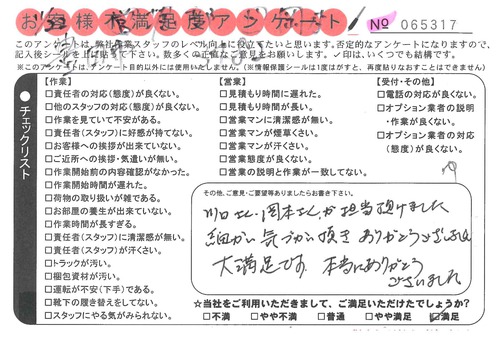 お客様不満足度アンケート
No 065317
このアンケートは、弊社作業スタッフのレベル向上に役立てたいと思います。否定的なアンケートになりますので、
記入後シールを上げて下さい。数多くの正直なご意見をお願いします。✓印は、いくつでも結構です。
※このアンケートは、アンケート目的以外には使用いたしません。(※情報保護シールは1度はがすと、再度貼りなおすことはできません)
●チェックリスト
【作業】
□責任者の対応(態度)が良くない。
□他のスタッフの対応(態度)が良くない。
□作業を見ていて不安がある。
□責任者(スタッフ)に好感が持てない。
□お客様への挨拶が出来ていない。
□ご近所への挨拶・気遣いが無い。
□作業開始前の内容確認がなかった。
□作業開始時間が遅れた。
□荷物の取り扱いが雑である。
□お部屋の養生が出来ていない。
□作業時間が長すぎる。
□責任者(スタッフ)に清潔感が無い。
□責任者(スタッフ)が汗くさい。
□トラックが汚い。
□梱包資材が汚い。
□運転が不安(下手)である。
□靴下の履き替えをしてない。
□スタッフにやる気がみられない。
【営業】
□見積もり時間に遅れた。
□見積もり時間が長い。
□営業マンに清潔感が無い。
□営業マンが煙草くさい。
□営業マンが汗くさい。
□営業態度が良くない。
□営業の説明と作業が一致してない。
【受付・その他】
□電話の対応が良くない。
□オプション業者の説明
・作業が良くない。
□オプション業者の対応
(態度)が良くない。
その他、ご意見・ご要望等ありましたらお書き下さい。
川口さん、岡本さんが担当頂けました
細かい気づかい頂きありがとうございました
大満足です。本当にありがとう
ございました
☆当社をご利用いただきまして、ご満足いただけたでしょうか?
□不満 □やや不満 □普通 □やや満足 ☑満足